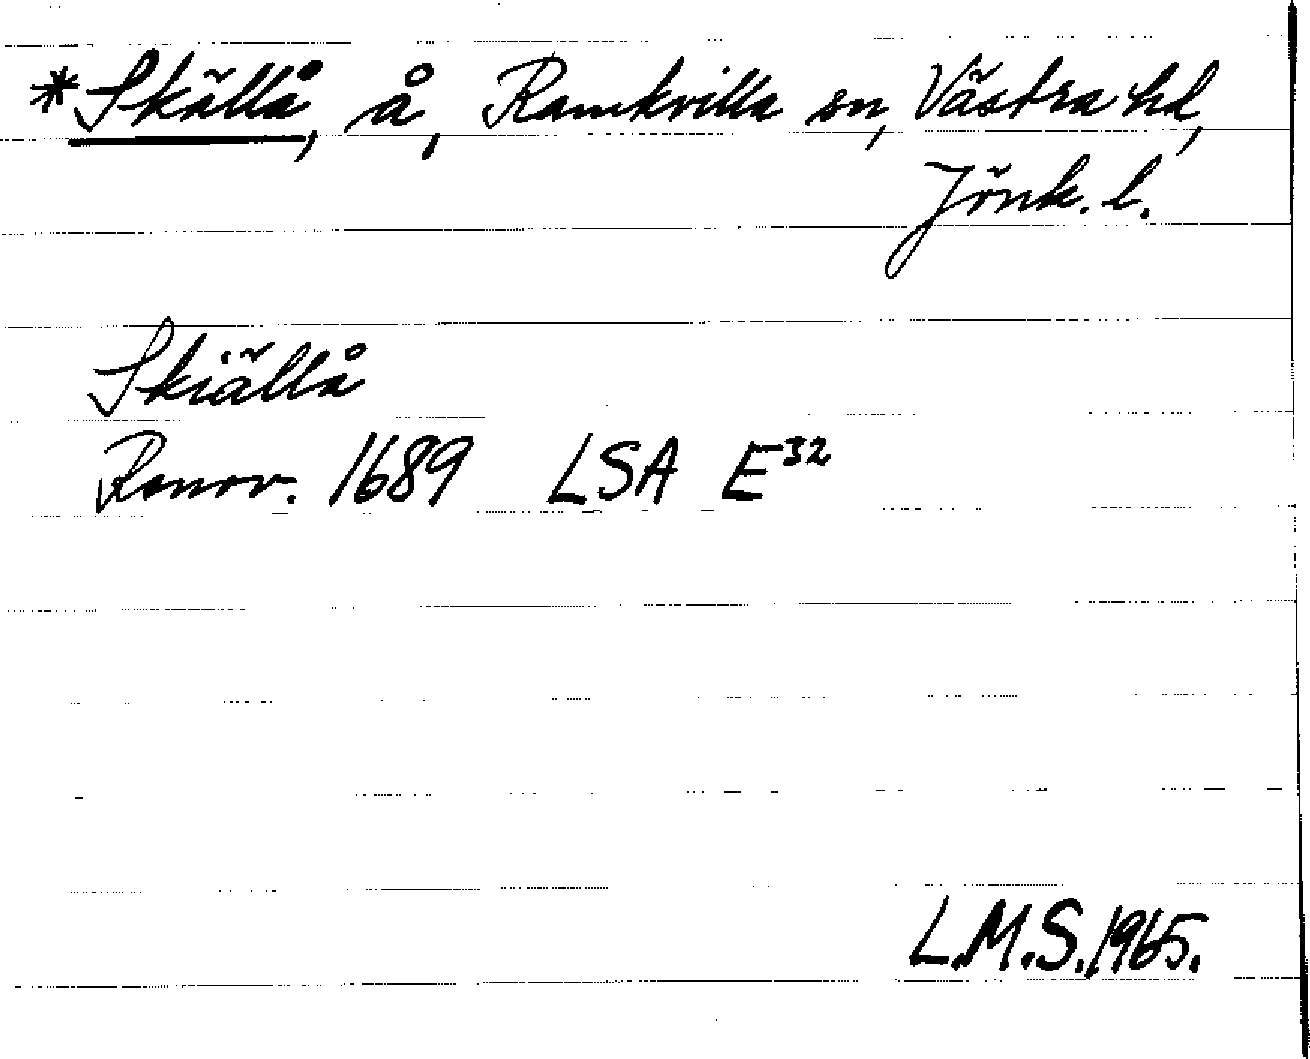 *Skällå, å, Ramkvilla sn, Västra hd,
Jönk. l.
Skiällå
Renov. 1689 LSA E32
L.M.S. 1965.